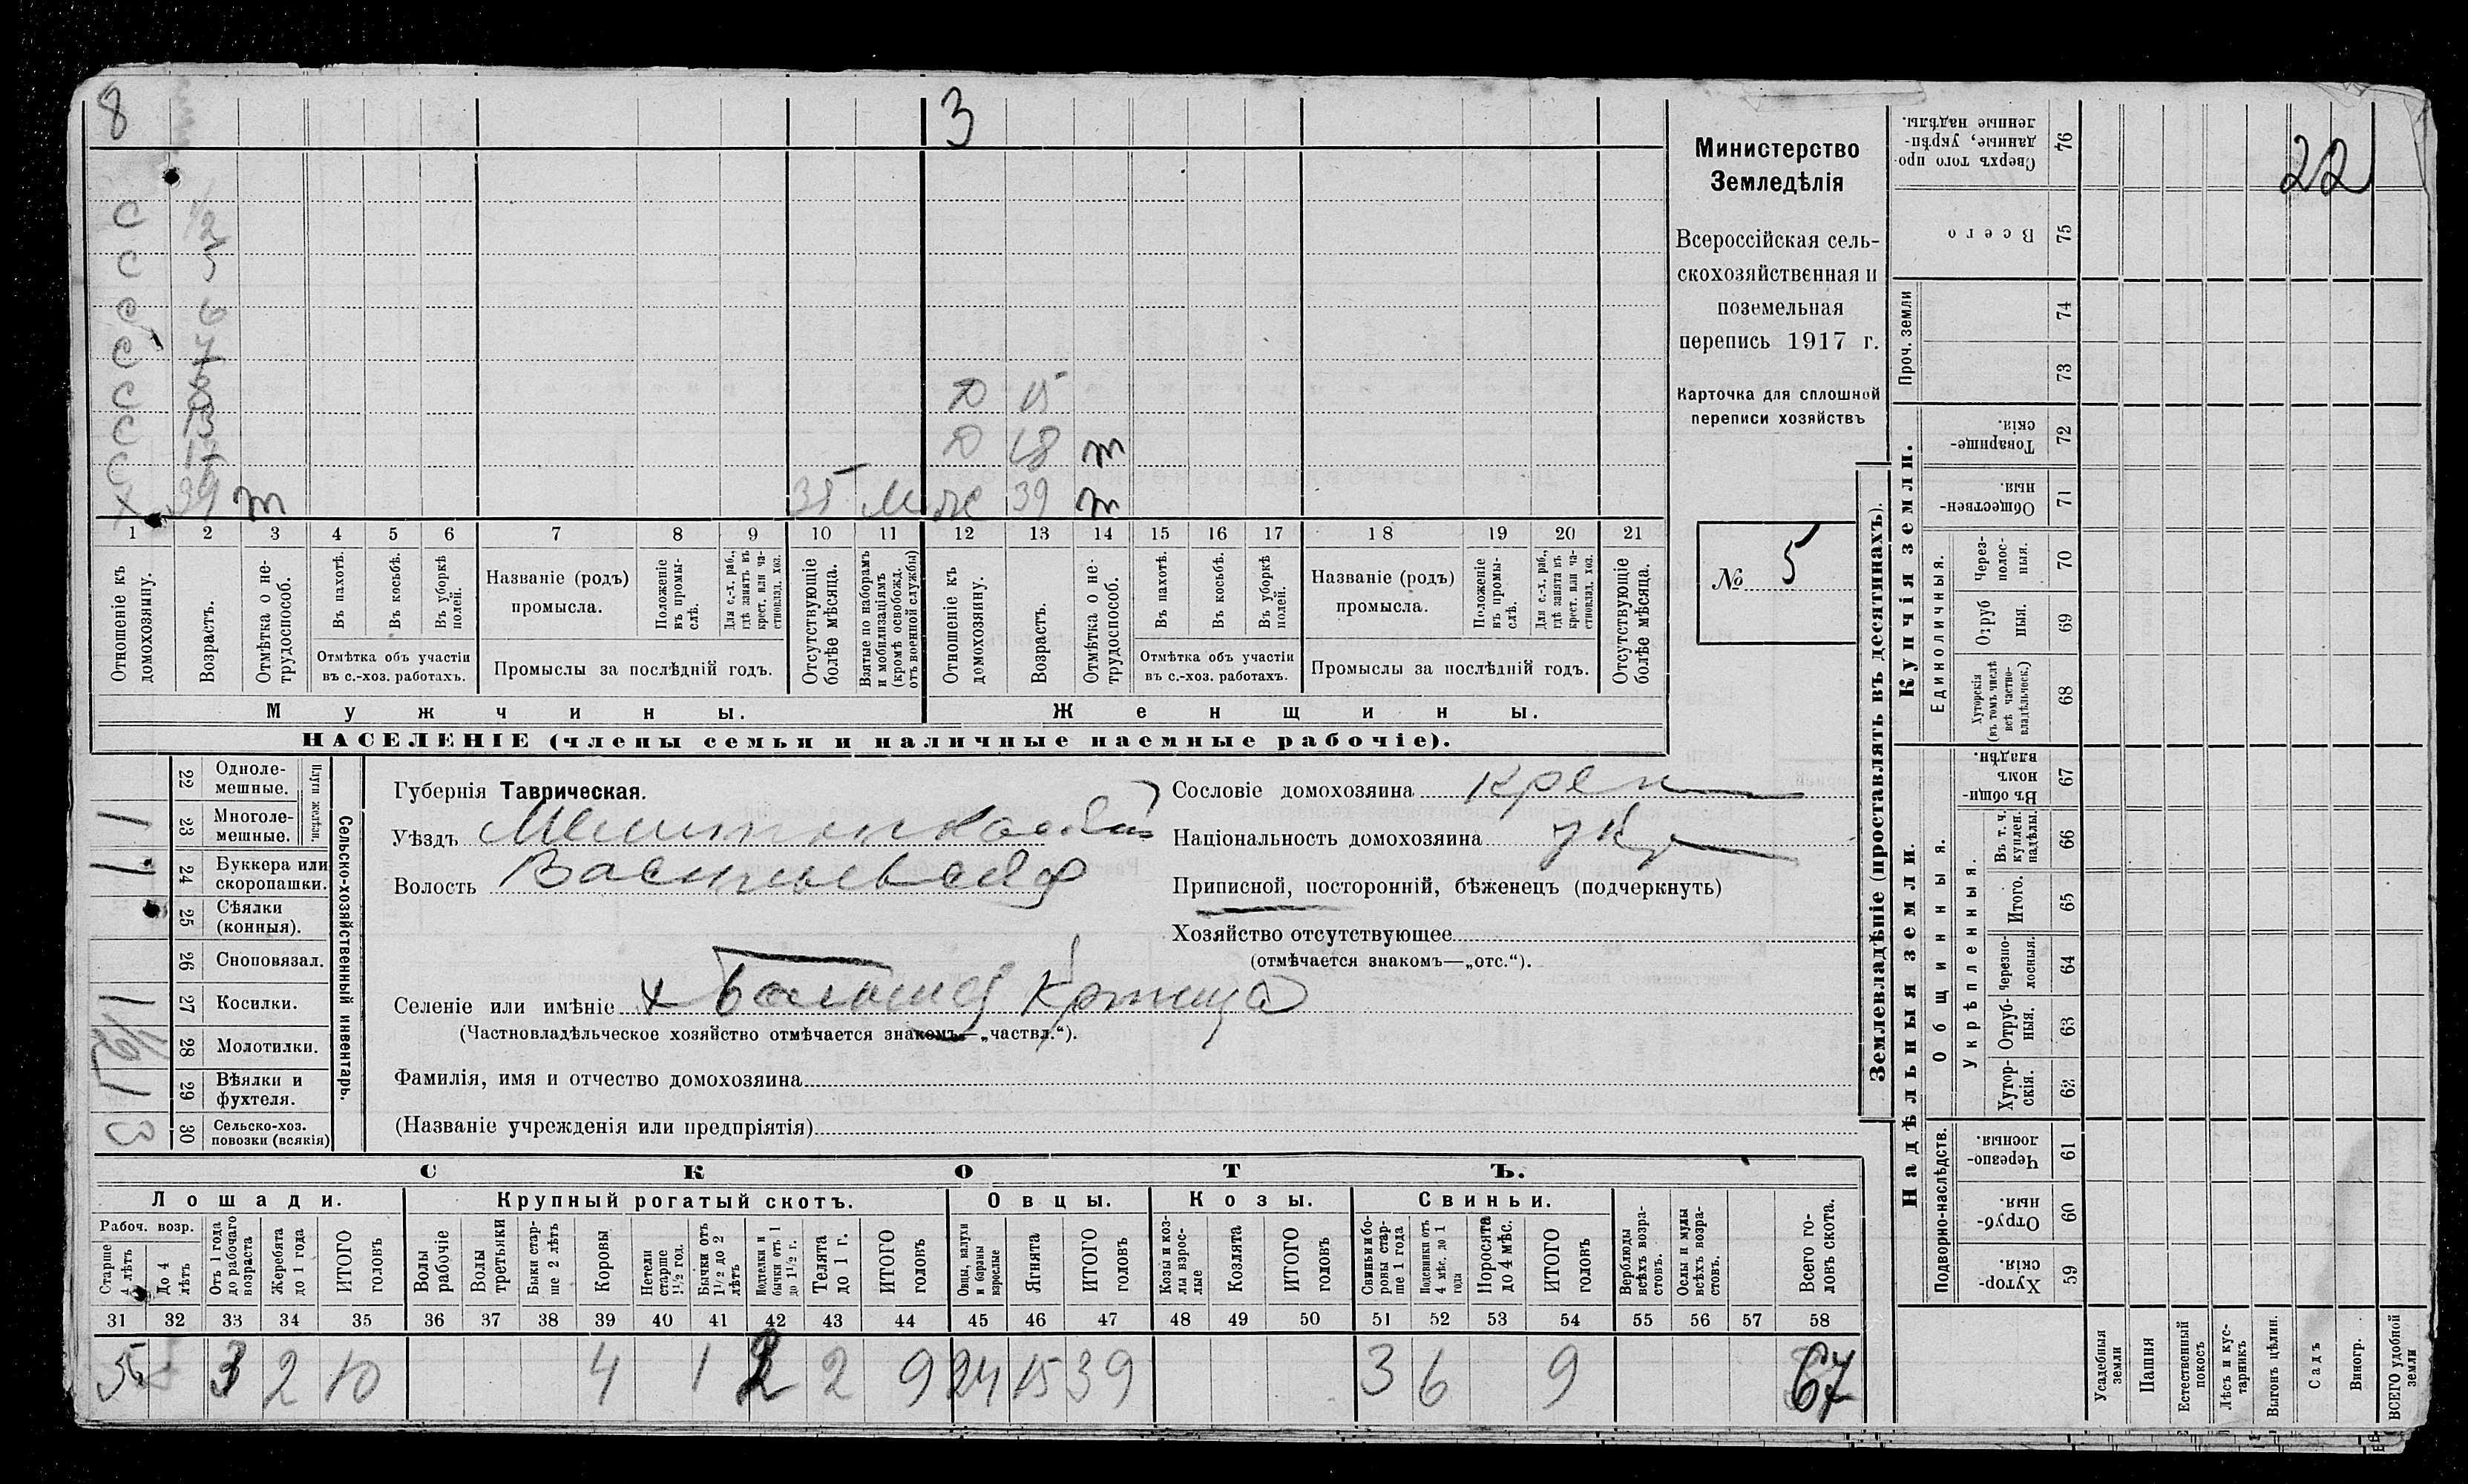 8
3
С 1/2
С 5
С 6
С 7
С 8
С 13
С
Х 39 т
35 М
Д 15
Д 18 т
ж 39 т
1 2 3 4 5 6 7 8 9 10 11 12 13 14 15 16 17 18 19 20 21
Отношеніе къ домохозяину.
Возрастъ.
Отмѣтка о не-трудоспособ.
Въ пахотѣ.
Въ косьбѣ.
Въ уборкѣ полей.
Отмѣтка объ участіи въ с.-хоз. работахъ.
Названіе (родъ) промысла.
Положеніе въ промы-слѣ.
Для с.-х. раб., гдѣ занятъ въ крест. или ча-стновлад. хоз.
Промыслы за послѣдній годъ.
Отсутствующіе болѣе мѣсяца.
Взятые по наборамъ и мобилизаціямъ (кромѣ освобожд. отъ военной службы)
Отношеніе къ домохозяину.
Возрастъ.
Отмѣтка о не-трудоспособ.
Въ пахотѣ.
Въ косьбѣ.
Въ уборкѣ полей.
Отмѣтка объ участіи въ с.-хоз. работахъ.
Названіе (родъ) промысла.
Положеніе въ промы-слѣ.
Для с.-х. раб., гдѣ занята въ крест. или ча-стновлад. хоз.
Промыслы за послѣдній годъ.
Отсутствующіе болѣе мѣсяца.
Мужчины.
Женщины.
НАСЕЛЕНІЕ (члены семьи и наличные наемные рабочіе).
Министерство
Земледѣлія
Всероссійская сель-
скохозяйственная и
поземельная
перепись 1917 г.
Карточка для сплошной
переписи хозяйствъ
№ 5
Сельско-хозяйственный инвентарь.
Плуги желѣзн.
22 Одноле-мешные.
1 23 Многоле-мешные.
1 24 Буккера или скоропашки.
25 Сѣялки (конныя).
26 Сноповязал.
1 27 Косилки.
1/2 28 Молотилки.
1 29 Вѣялки и фухтеля.
3 30 Сельско-хоз. повозки (всякія)
Губернія Таврическая.
Уѣздъ Мелитопольскій
Волость Васильевская
Селеніе или имѣніе
(Частновладѣльческое хозяйство отмѣчается знакомъ—„частвл.“).
Фамилія, имя и отчество домохозяина
(Названіе учрежденія или предпріятія)
Сословіе домохозяина крест
Національность домохозяина укр
Приписной, посторонній, бѣженецъ (подчеркнуть)
Хозяйство отсутствующее
(отмѣчается знакомъ—„отс.“).
СКОТЪ.
Лошади.
Крупный рогатый скотъ.
Овцы.
Козы.
Свиньи.
Рабоч. возр.
Старше 4 лѣтъ
До 4 лѣтъ
Отъ 1 года до рабочаго возраста
Жеребята до 1 года
ИТОГО головъ
Волы рабочіе
Волы третьяки
Быки стар-ше 2 лѣтъ
Коровы
Нетели старше 1½ год.
Бычки отъ 1½ до 2 лѣтъ
Подтелки и бычки отъ 1 до 1½ г.
Телята до 1 г.
ИТОГО головъ
Овцы, валухи и бараны взрослые
Ягнята
ИТОГО головъ
Козы и коз-лы взрос-лые
Козлята
ИТОГО головъ
Свиньи и бо-ровы стар-ше 1 года
Подсвинки отъ 4 мѣс. до 1 года
Поросята до 4 мѣс.
ИТОГО головъ
Верблюды всѣхъ возра-стовъ.
Ослы и мулы всѣхъ возра-стовъ.
Всего го-ловъ скота.
31 32 33 34 35 36 37 38 39 40 41 42 43 44 45 46 47 48 49 50 51 52 53 54 55 56 57 58
5 3 2 10 4 1 2 2 9 24 15 39 3 6 9 67
Землевладѣніе (проставлять въ десятинахъ).
22
Сверхъ того про-данные, укрѣп-ленные надѣлы. 76
Всего 75
Проч. земли 74 73
Купчія земли.
Товарище-скія. 72
Обществен-ныя. 71
Единоличныя.
Через-полос-ныя. 70
Отруб ныя. 69
Хуторскія (въ томъ числѣ всѣ частно-владѣльческ.) 68
Надѣльныя земли.
Общинныя.
Въ общи-номъ владѣн. 67
Укрѣпленныя.
Въ т. ч. куплен. надѣлы. 66
Итого. 65
Черезпо-лосныя. 64
Отруб-ныя. 63
Хутор-скія. 62
Подворно-наслѣдств.
Черезпо-лосныя. 61
Отруб-ныя. 60
Хутор-скія. 59
Усадебныя земли
Пашня
Естественный покосъ
Лѣсъ и кус-тарникъ
Выгонъ цѣлин.
Садъ
Виногр.
ВСЕГО удобной земли